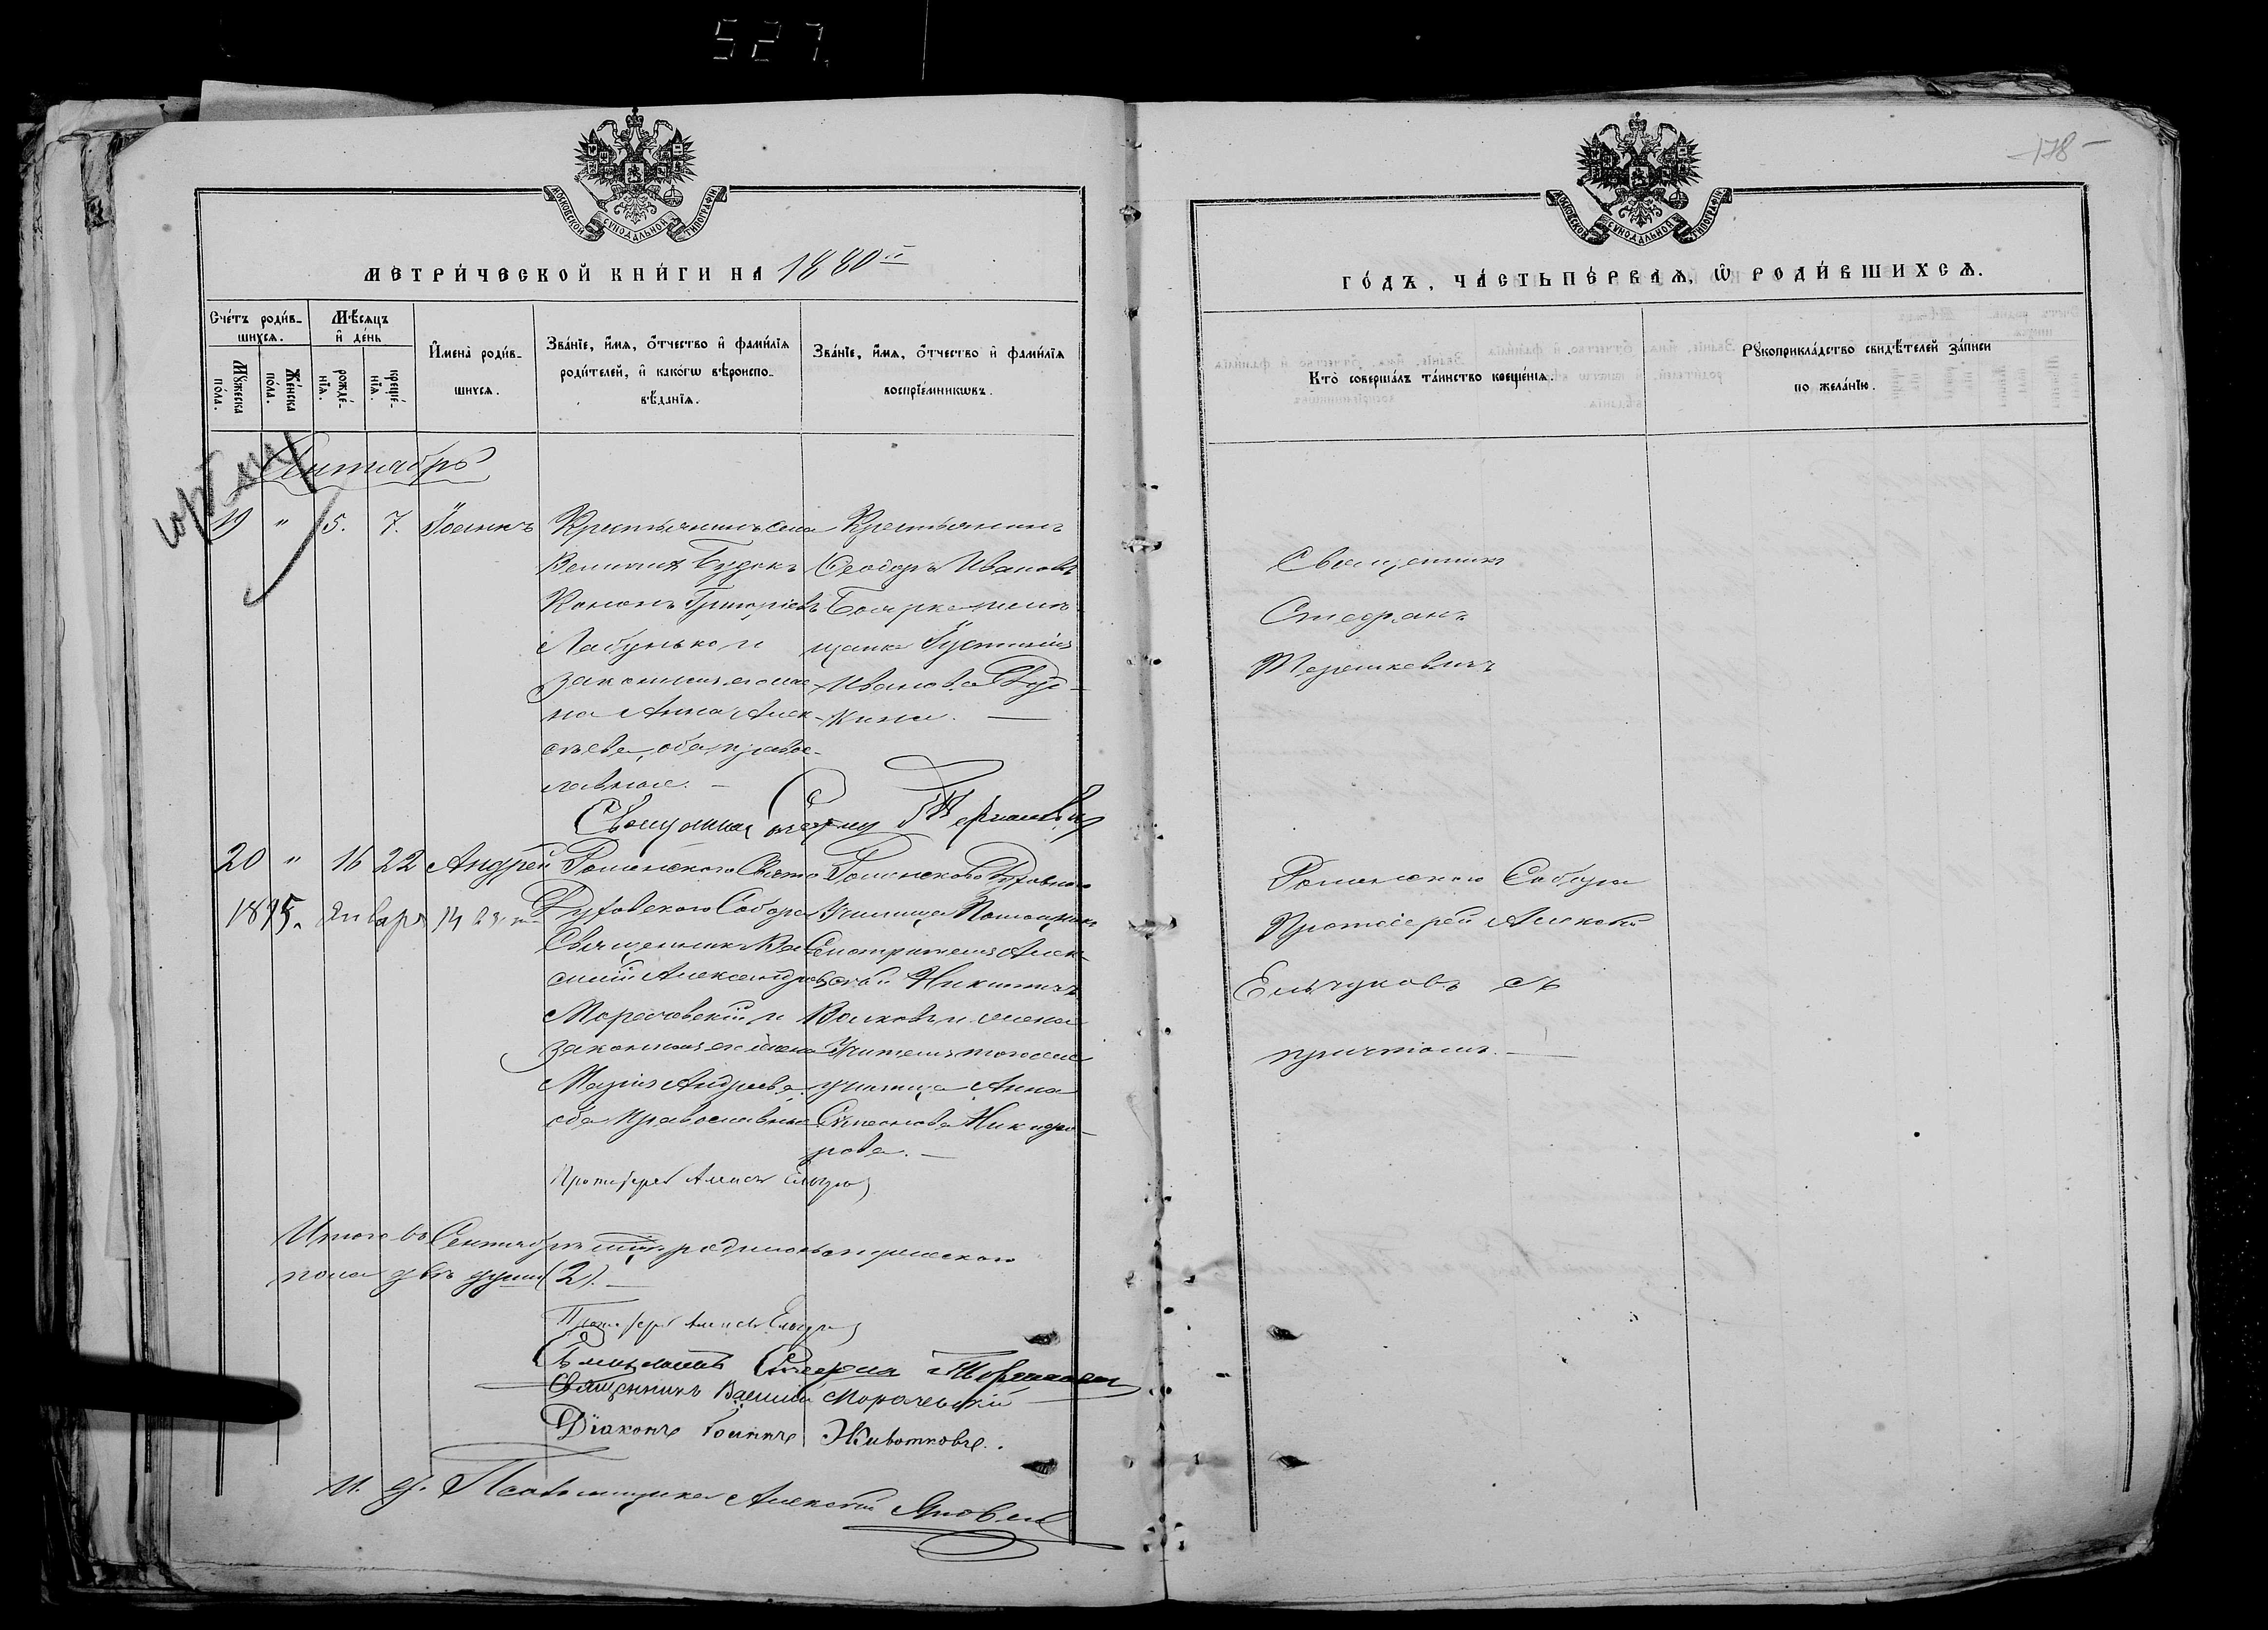 527.
178
МОСКОВСКОЙ СѴНОДАЛЬНОЙ ТИПОГРАФІИ
МЕТРИ́ЧЕСКОЙ КНИ́ГИ НА 1880
Счéтъ роди́в-
шихсѧ.
Мꙋ́жеска
по́ла.
Же́нска
по́ла.
Мѣ́сѧцъ
и҆ де́нь
рожде́-
нїѧ.
креще́-
нїѧ.
И҆мена̀ роди́в-
шихсѧ.
Зва́нїе, и҆́мѧ, ѻ҆́тчество и҆ фами́лїѧ
роди́телей, и҆ како́гѡ вѣроиспо-
вѣ́данїѧ.
Зва́нїе, и҆́мѧ, ѻ҆́тчество и҆ фами́лїѧ
воспрїе́мникѡвъ.
Сентябрь
19 " 5. 7. Іоаннъ
Крестьянинъ села
Великихъ Будокъ
Кононъ Григоріевъ
Лабунько и
законная его же-
на Анна Алек-
сѣева, оба право-
славные. —
Крестьянинъ
Ѳеодоръ Ивановъ
Иванова
Священникъ Стефанъ Терешкевичъ
20 " 16 22 Андрей
1895. Января 14
Роменскаго Свято
Духовскаго Собора
Священникъ Ва-
силій Александровъ
Морачевскій и
законная его жена
Марія Андреева,
оба православные
Роменскаго Духовнаго
Училища Помощникъ
Смотрителя Алек-
сѣй Никитичъ
Волковъ и жена
Учителя того же
училища Анна
Стефанова Никифо-
рова. —
Протоіерей Алексѣй
Итого въ Сентябрѣ родилось мужескаго
пола двѣ души (2). —
Протоіерей Алексѣй
Священникъ Стефанъ Терешкевичъ
Священникъ Василій Морачевскій
Діаконъ Іоаннъ Животковъ.
И. д. Псаломщика Алексѣй
МОСКОВСКОЙ СѴНОДАЛЬНОЙ ТИПОГРАФІИ
ГО́ДЪ, ЧА́СТЬ ПЕ́РВАѦ, Ѽ РОДИ́ВШИХСѦ.
Кто̀ соверша́лъ та́инство креще́нїѧ.
Рꙋкоприкла́дство свидѣ́телей за́писи
по жела́нїю.
Священникъ
Стефанъ
Терешкевичъ
Роменскаго Собора
Протоіерей Алексѣй
съ
причтомъ. —